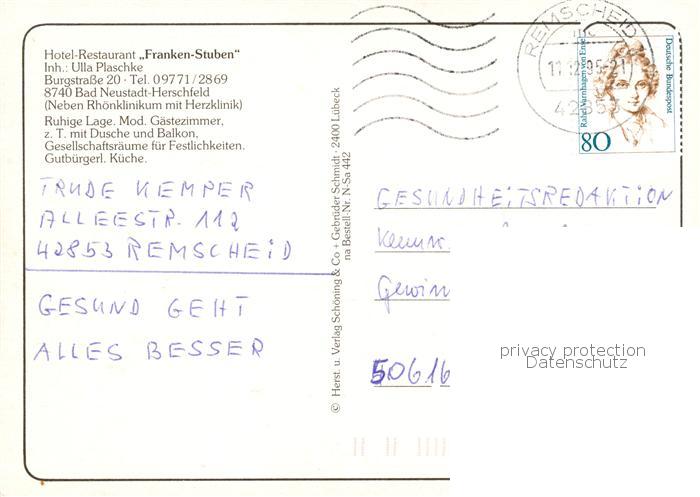 Hotel-Restaurant „Franken-Stuben“
Inh.: Ulla Plaschke
Burgstraße 20 · Tel. 09771/2869
8740 Bad Neustadt-Herschfeld
(Neben Rhönklinikum mit Herzklinik)
Ruhige Lage. Mod. Gästezimmer,
z. T. mit Dusche und Balkon,
Gesellschaftsräume für Festlichkeiten.
Gutbürgerl. Küche.
TRUDE KEMPER
ALLEESTR. 112
42853 REMSCHEID
GESUND GEHT
ALLES BESSER
© Herst. u. Verlag Schöning & Co + Gebrüder Schmidt · 2400 Lübeck
na Bestell-Nr. N-Sa 442
REMSCHEID
42853
Rahel Varnhagen von Ense
Deutsche Bundespost
80
GESUNDHEITSREDAKTION
Kennw.
Gewin
50616
privacy protection
Datenschutz